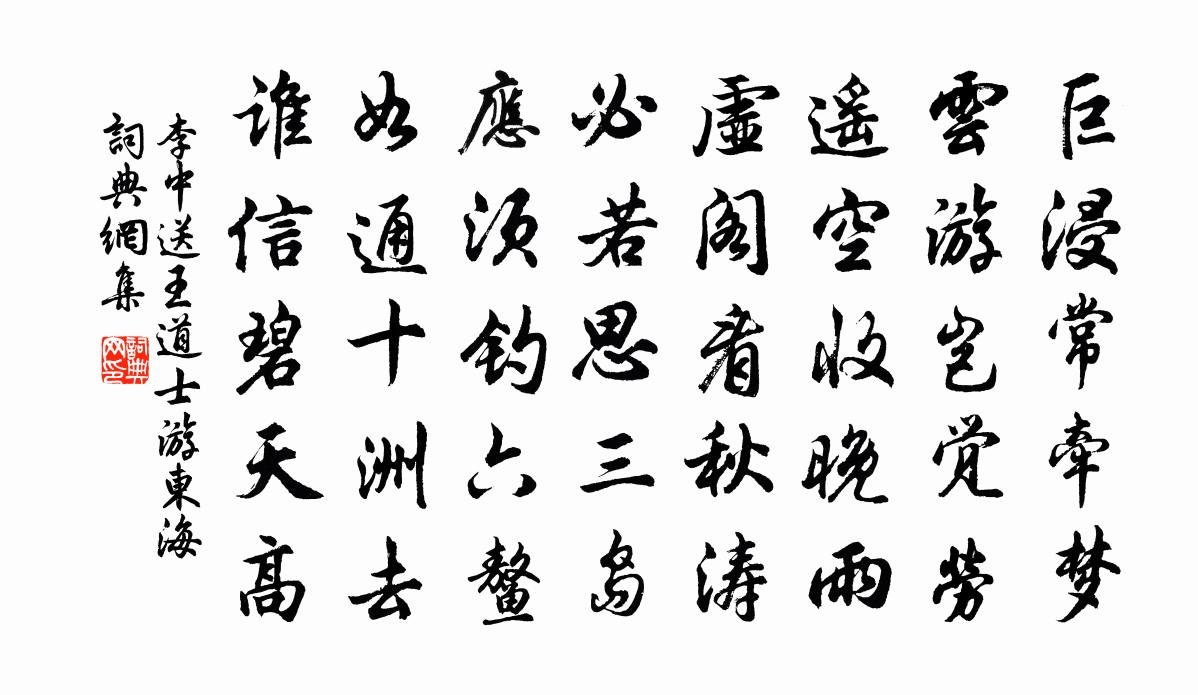 巨浸常牽梦
雲游岂覺勞
遥空收晚雨
虛阁看秋涛
必若思三岛
應须钓六鳌
如通十洲去
谁信碧天高
李中送王道士游東海
詞典網集
詞典網印